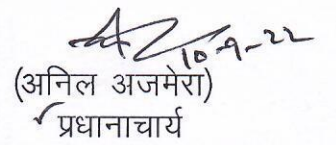 10-9-22
(अनिल अजमेरा)
प्रधानाचार्य